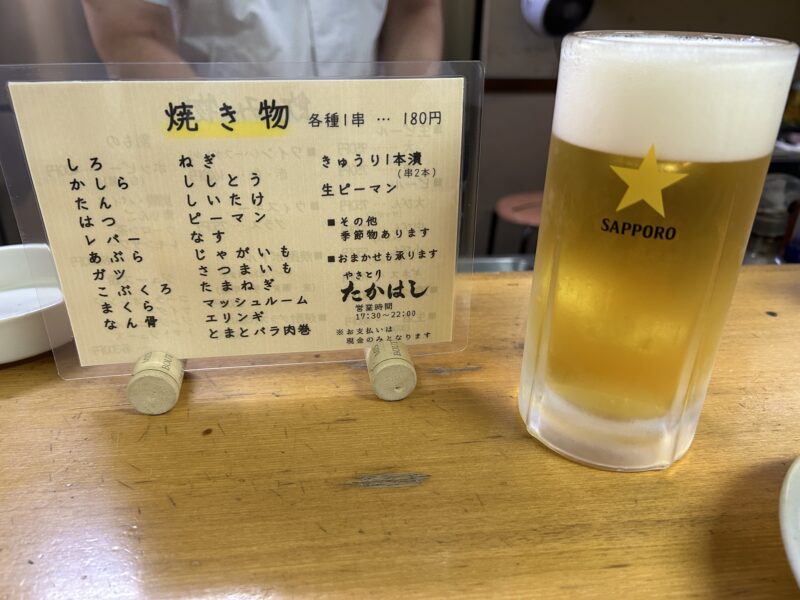 焼き物 各種1串 … 180円
しろ
かしら
たん
はつ
レバー
あぶら
ガツ
こぶくろ
まくら
なん骨
ねぎ
ししとう
しいたけ
ピーマン
なす
じゃがいも
さつまいも
たまねぎ
マッシュルーム
エリンギ
とまとバラ肉巻
きゅうり1本漬
(串2本)
生ピーマン
■その他
季節物あります
■おまかせも承ります
やきとり
たかはし
営業時間
17:30~22:00
※お支払いは
現金のみとなります
SAPPORO